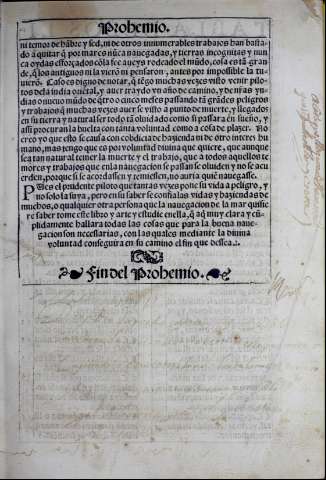 Prohemio.
ni temor de hãbre y sed, ni de otros innumerables trabajos han basta-
do a quitar q̃ por mares nũca nauegadas, y tierras incognitas y nun
ca oydas esforçados cõ la fee aueys rodeado el mũdo, cosa es tã gran
de, q̃ los antiguos ni la vierõ ni pensaron, antes por impossible la tu-
uierõ. Caso es digno de notar, q̃ tẽgo muchas vezes visto venir pilo-
tos dela india oriẽtal, y auer traydo vn año de camino, y de nr̃as yn-
dias o nueuo mũdo de q̃tro o cinco meses passando tã grãdes peligros
y trabajos q̃ muchas vezes auer se visto a punto de muerte, y llegados
en su tierra y natural ser todo tã oluidado como si passara en sueño, y
assi procuran la buelta con tanta voluntad como a cosa de plazer. No
creo yo que esto se causa con cobdicia de hazienda ni de otro interes hu
mano, mas pẽgo que es por voluntad diuina que quiere, que aunque
sea tan natural temer la muerte y el trabajo, que a todos aquellos te
mores y trabajos que enla nauegacion se passan se oluiden y no se acu
erden, porque si se acordassen y temiessen, no auria quiẽ nauegasse.
PUes el prudente piloto que tantas vezes pone su vida a peligro, y
no solo la suya, pero en su saber se confia las vidas y haziendas de
muchos, o qualquier otra persona que la nauegacion de la mar quisie
re saber tome este libro y arte y estudie enella, q̃ aq̃ muy clara y cũ-
plidamente hallara todas las cosas que para la buena naue-
gacion son necessarias, con las quales mediante la diuina
voluntad conseguira en su camino el fin que dessea.
Fin del Prohemio.